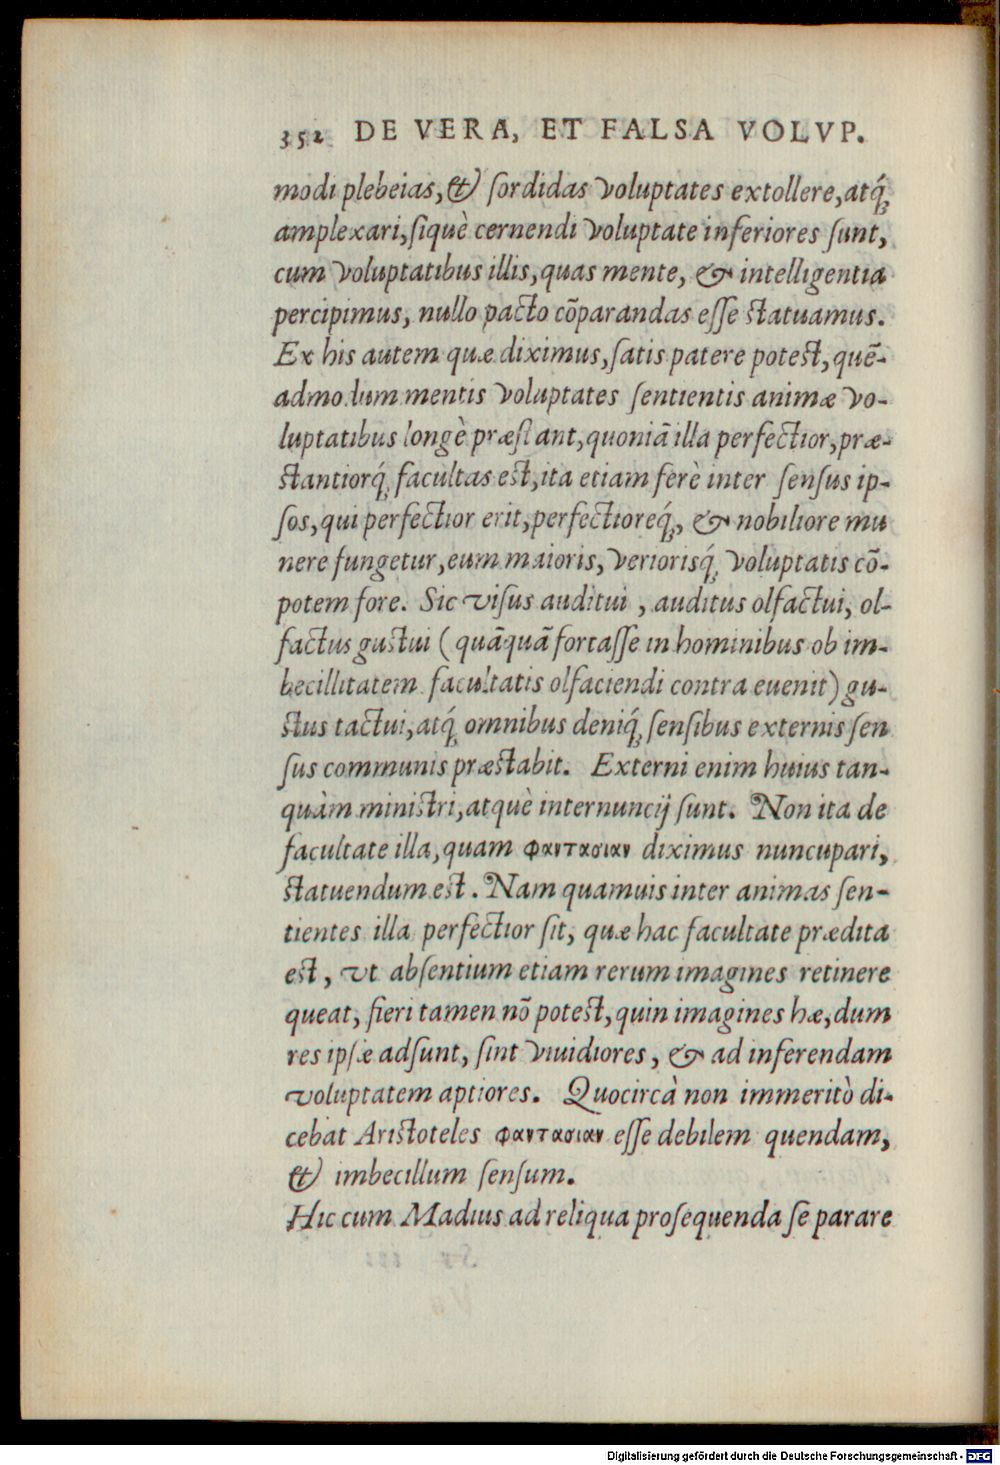 352 DE VERA, ET FALSA VOLVP.
modi plebeias, & sordidas voluptates extollere, atq́;
amplexari, siquè cernendi voluptate inferiores sunt,
cum voluptatibus illis, quas mente, & intelligentia
percipimus, nullo pacto cõparandas esse statuamus.
Ex his autem quæ diximus, satis patere potest, quẽ-
admodum mentis voluptates sentientis animæ vo-
luptatibus longè præstant, quoniã illa perfectior, præ-
stantiorq́; facultas est, ita etiam ferè inter sensus ip-
sos, qui perfectior erit, perfectioreq́;, & nobiliore mu
nere fungetur, eum maioris, veriorisq́; voluptatis cõ-
potem fore. Sic visus auditui, auditus olfactui, ol-
factus gustui (quãquã fortasse in hominibus ob im-
becillitatem facultatis olfaciendi contra euenit) gu-
stus tactui, atq́; omnibus deniq́; sensibus externis sen
sus communis præstabit. Externi enim huius tan-
quàm ministri, atquè internuncij sunt. Non ita de
facultate illa, quam φαντασιαν diximus nuncupari,
statuendum est. Nam quamuis inter animas sen-
tientes illa perfectior sit, quæ hac facultate prædita
est, vt absentium etiam rerum imagines retinere
queat, fieri tamen nõ potest, quin imagines hæ, dum
res ipsæ adsunt, sint viuidiores, & ad inferendam
voluptatem aptiores. Quocircà non immeritò di-
cebat Aristoteles φαντασιαν esse debilem quendam,
& imbecillum sensum.
Hic cum Madius ad reliqua prosequenda se parare
Digitalisierung gefördert durch die Deutsche Forschungsgemeinschaft - DFG